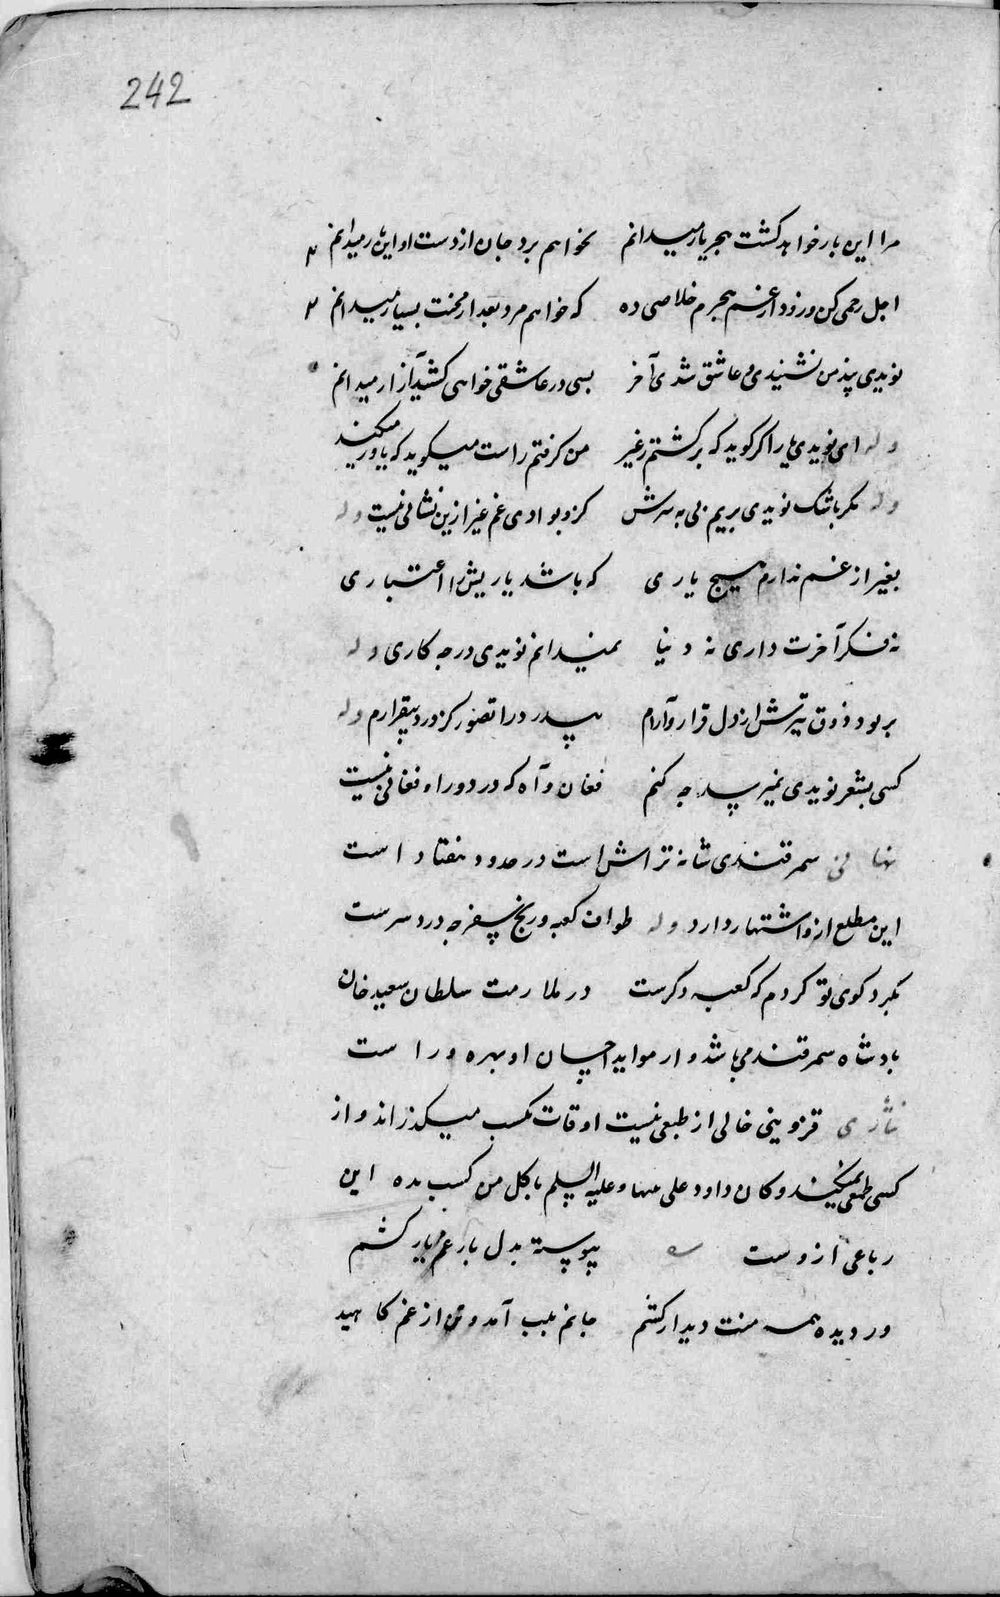 242
مرا این بار خواهد کشت هجر یار میدانم نخواهم برد جان از دست او این بار میدانم
اجل رحمی کن و زود از غم هجرم خلاصی ده که خواهم مرد بعد از محنت بسیار میدانم
نویدی پند من نشنیدی و عاشق شدی آخر بسی در عاشقی خواهی کشید آزار میدانم
وله ای نویدی یار اگر گوید که برگشتم ز غیر من گرفتم راست میگوید که باور میکند
وله مگر باشک نویدی بریم پی به سرش کزو بوادی غم غیر ازین نشانی نیست وله
بغیر از غم ندارم هیچ یاری که باشد یاریش را اعتباری
نه فکر آخرت داری نه دنیا نمیدانم نویدی در چه کاری وله
ربود ذوق تیرش از دل قرار و آرام بیدرد را تصور کز درد بیقرارم وله
کسی بشعر نویدی نمیرسد چه کنم فغان و آه که در دور او فغانی نیست
نهانی سمرقندی شانه تراش است در حدود هفتاد است
این مطلع ازو اشتهار دارد وله طواف کعبه و رنج سفر چه درد سرست
بگرد کوی تو گردم که کعبه دگرست در ملازمت سلطان سعید خان
بادشاه سمرقند می باشد و از مواید احسان او بهره ور است
نثاری قزوینی خالی از طبعی نیست اوقات بکسب میگذراند و از
کسی طمعی نمیکند و کان داود علی نبینا و علیه السلم یاکل من کسب یده این
رباعی ازوست پیوسته بدل بار غم یار کشم
در دیده همه منت دیدار کشم جانم بلب آمد و من از غم کاهید